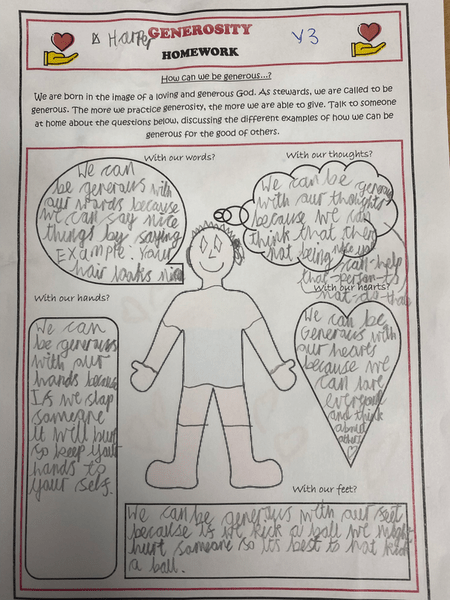 Harper
Y3
GENEROSITY
HOMEWORK
How can we be generous...?
We are born in the image of a loving and generous God. As stewards, we are called to be
generous. The more we practice generosity, the more we are able to give. Talk to someone
at home about the questions below, discussing the different examples of how we can be
generous for the good of others.
With our words?
We can
be generous with
our words because
we can say nice
things by saying
Example: Your
hair looks nice
With our thoughts?
We can be generous
with our thoughts
because we can
think that they
not being nice
can help
that person to
not do that
With our hands?
We can
be generous
with our
hands because
If we slap
someone
it will hurt
so keep your
hands to
your self.
With our hearts?
We can be
Generous with
our hearts
because we
can love
everyone
and think
about
With our feet?
We can be generous with our feet
because if we kick a ball we might
hurt someone so its best to not kick
a ball.